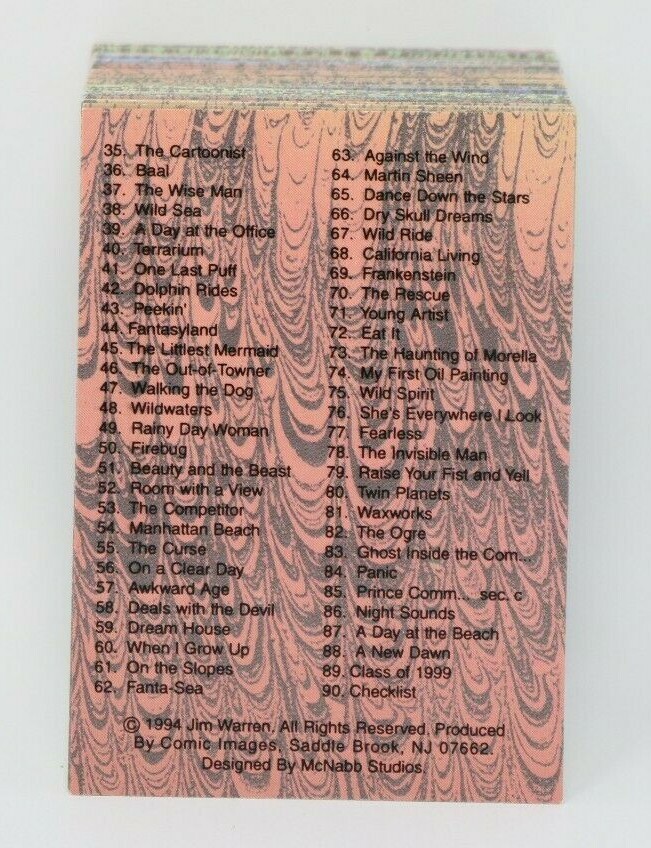 35. The Cartoonist
36. Baal
37. The Wise Man
38. Wild Sea
39. A Day at the Office
40. Terrarium
41. One Last Puff
42. Dolphin Rides
43. Peekin'
44. Fantasyland
45. The Littlest Mermaid
46. The Out-of-Towner
47. Walking the Dog
48. Wildwaters
49. Rainy Day Woman
50. Firebug
51. Beauty and the Beast
52. Room with a View
53. The Competitor
54. Manhattan Beach
55. The Curse
56. On a Clear Day
57. Awkward Age
58. Deals with the Devil
59. Dream House
60. When I Grow Up
61. On the Slopes
62. Fanta-Sea
63. Against the Wind
64. Martin Sheen
65. Dance Down the Stars
66. Dry Skull Dreams
67. Wild Ride
68. California Living
69. Frankenstein
70. The Rescue
71. Young Artist
72. Eat It
73. The Haunting of Morella
74. My First Oil Painting
75. Wild Spirit
76. She's Everywhere I Look
77. Fearless
78. The Invisible Man
79. Raise Your Fist and Yell
80. Twin Planets
81. Waxworks
82. The Ogre
83. Ghost Inside the Com...
84. Panic
85. Prince Comm... sec. c
86. Night Sounds
87. A Day at the Beach
88. A New Dawn
89. Class of 1999
90. Checklist
© 1994 Jim Warren. All Rights Reserved. Produced
By Comic Images, Saddle Brook, NJ 07662.
Designed By McNabb Studios.